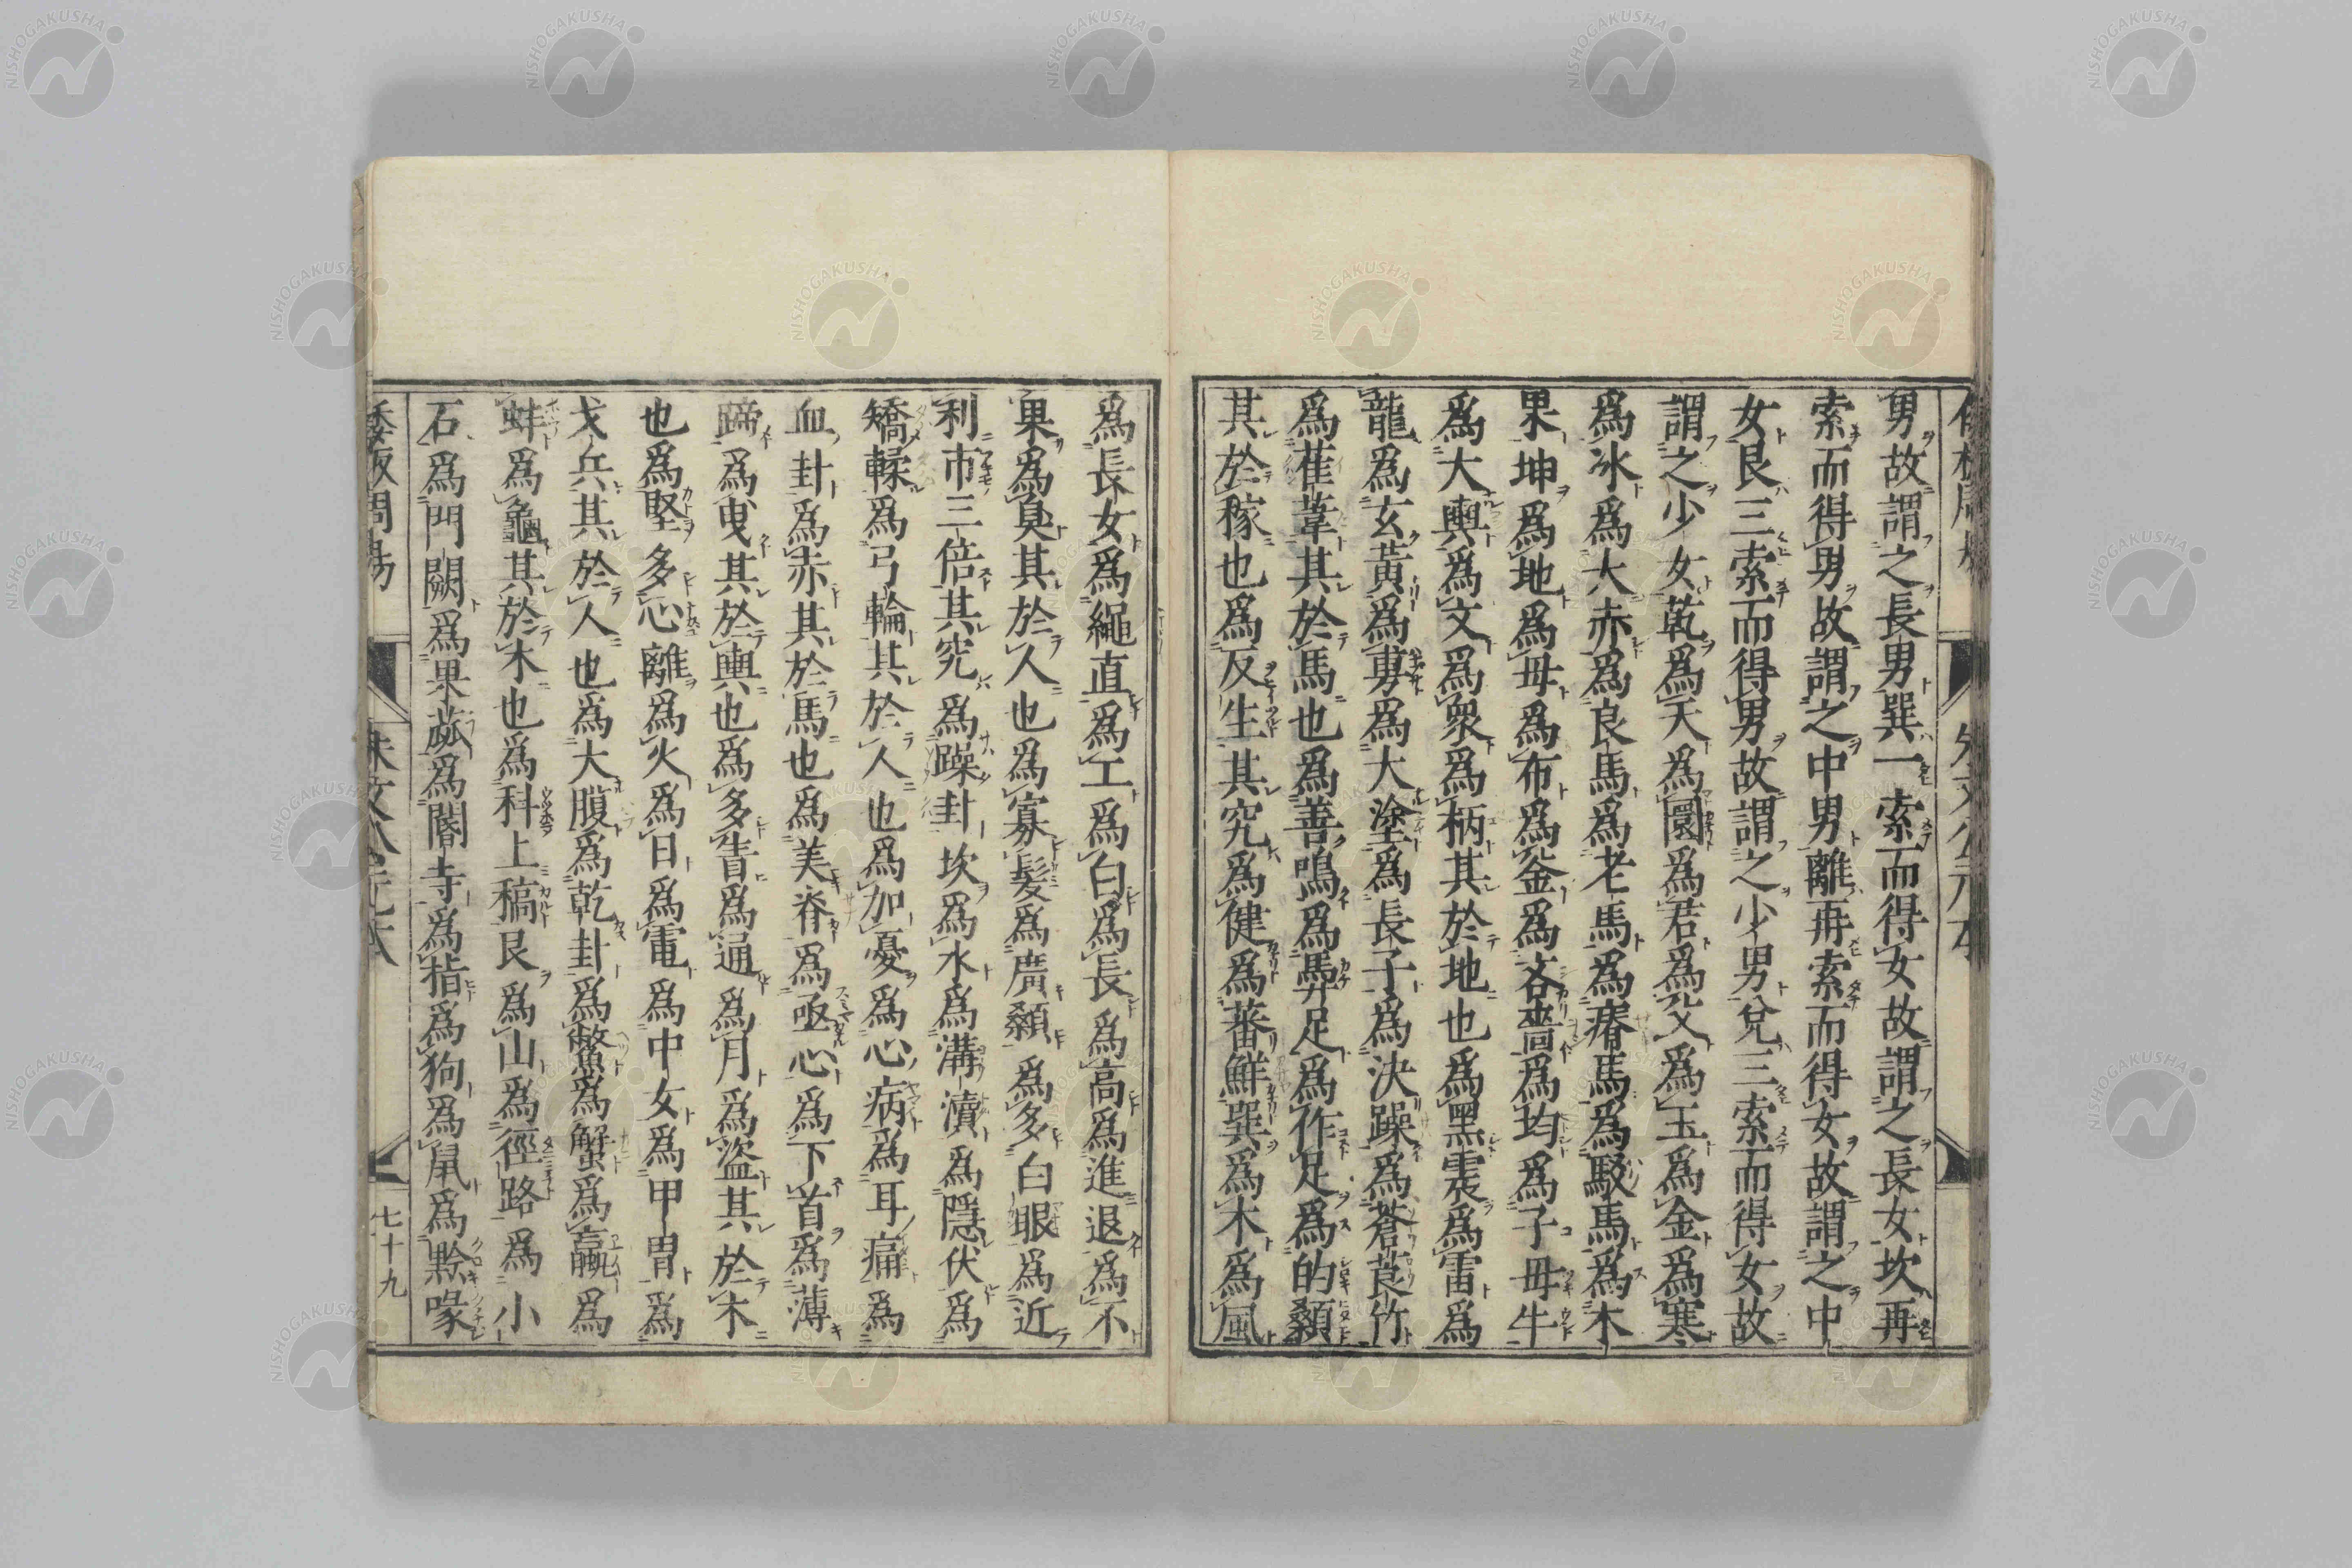 男故謂之長男巽一索而得女故謂之長女坎再
索而得男故謂之中男離再索而得女故謂之中
女艮三索而得男故謂之少男兌三索而得女故
謂之少女乾爲天爲圜爲君爲父爲玉爲金爲寒
爲冰爲大赤爲良馬爲老馬爲瘠馬爲駁馬爲木
果坤爲地爲母爲布爲釜爲吝嗇爲均爲子母牛
爲大輿爲文爲衆爲柄其於地也爲黑震爲雷爲
龍爲玄黃爲旉爲大塗爲長子爲決躁爲蒼莨竹
爲萑葦其於馬也爲善鳴爲馵足爲作足爲的顙
其於稼也爲反生其究爲健爲蕃鮮巽爲木爲風
爲長女爲繩直爲工爲白爲長爲高爲進退爲不
果爲臭其於人也爲寡髮爲廣顙爲多白眼爲近
利市三倍其究爲躁卦坎爲水爲溝瀆爲隱伏爲
矯輮爲弓輪其於人也爲加憂爲心病爲耳痛爲
血卦爲赤其於馬也爲美脊爲亟心爲下首爲薄
蹄爲曳其於輿也爲多眚爲通爲月爲盜其於木
也爲堅多心離爲火爲日爲電爲中女爲甲胄爲
戈兵其於人也爲大腹爲乾卦爲鱉爲蟹爲蠃爲
蚌爲龜其於木也爲科上稿艮爲山爲徑路爲小
石爲門闕爲果蓏爲閽寺爲指爲狗爲鼠爲黔喙
七十九
NISHOGAKUSHA